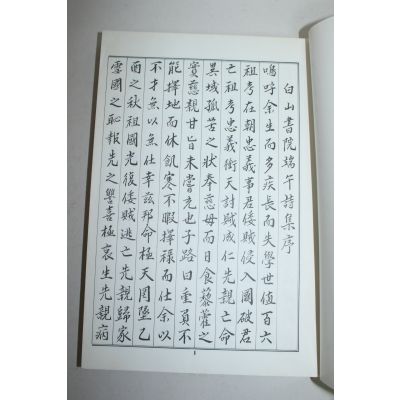 白山書院端午詩集序
嗚呼余生而多疾長而失學世值百六
祖考在朝忠義事君倭賊侵入國破君
亡祖考忠義衝天討賊成仁先親亡命
異域孤苦之狀奉慈母而日食藜藿之
實慈親甘旨未嘗充也子路曰重負不
能擇地而休飢寒不暇擇祿而仕余以
不才無以無仕幸玆邦命極天罔墜乙
酉之秋祖國光復倭賊逃亡先親歸家
雪國之恥報先之讐喜極哀生先親病
1